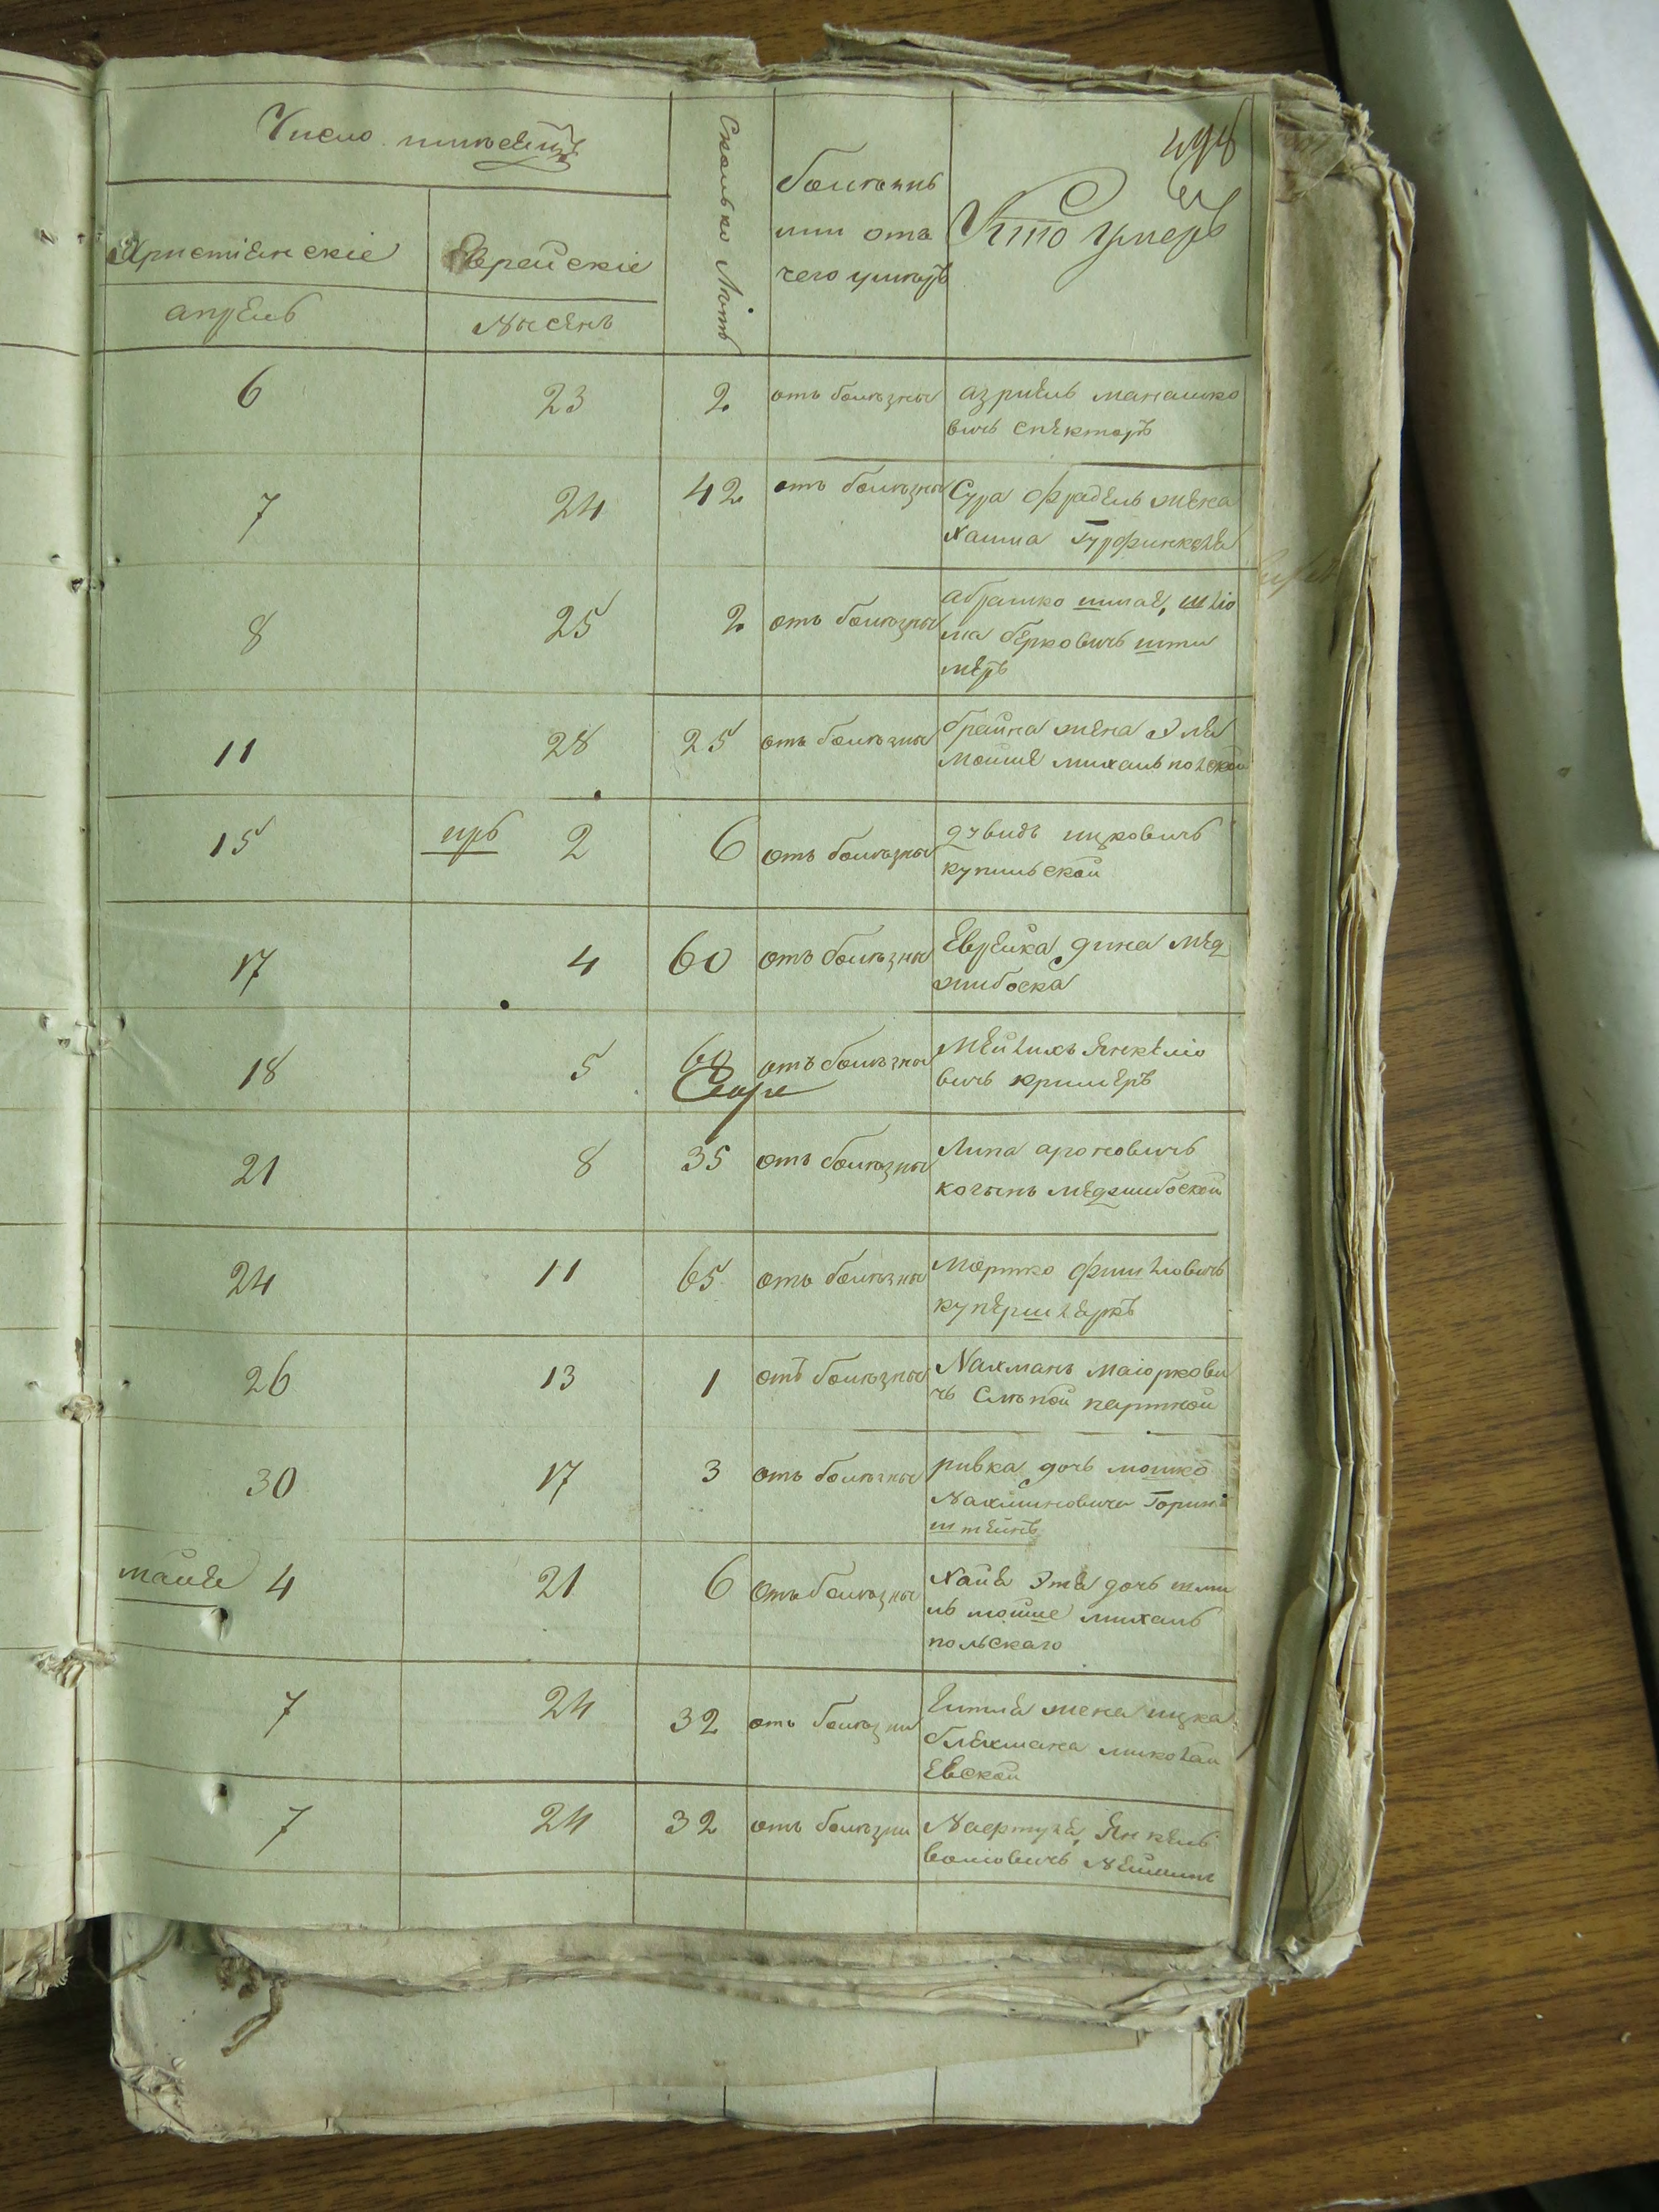 Число
Христіенскіе
Еврейскіе
Сколько Летъ
болезнь
или отъ
чего умеръ
Кто умеръ
апрель
Нисенъ
6 23 2 отъ болѣзны азриель манашко
вичъ спекторъ
7 24 42 отъ болѣзны Сура фрадель жена
Хаима Гурфинкеля
8 25 2 отъ болѣзны абрамко шмае, шлио
ма берковичъ шти
меръ
11 28 25 отъ болѣзны брайна жена Эля
Мошие михальполской
15 ирб 2 6 отъ болѣзны давидъ ицковичъ
купильской
17 4 60 отъ болѣзны Еврейка дина мед
жибоска
18 5 60 отъ болѣзны Мейлихъ Янкелио
вичъ кримеръ
21 8 35 отъ болѣзны Липа ароновичъ
когынъ меджибоской
24 11 65 отъ болѣзны Мортко фишлиовичъ
куперш
26 13 1 отъ болѣзны Нахманъ маіоркови
чъ Слѣпой
30 17 3 отъ болѣзны ривка дочь мошко
Нахминовича
штейнъ
майе 4 21 6 отъ болѣзны Хайе Этя дочь шми
ль мойше михаль
польскаго
7 24 32 отъ болѣзни жена ицка
блехмана миколаи
евской
7 24 32 отъ болѣзни Янкель